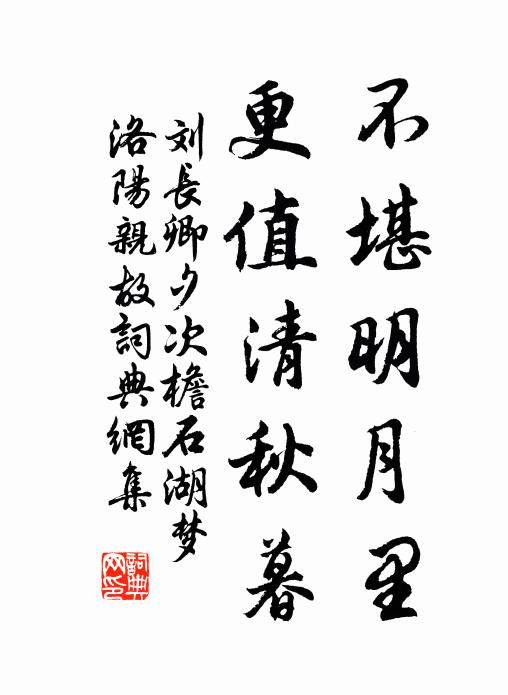 不堪明月里
更值清秋暮
刘長卿夕次檐石湖梦
洛陽親故詞典網集
詞典
网印